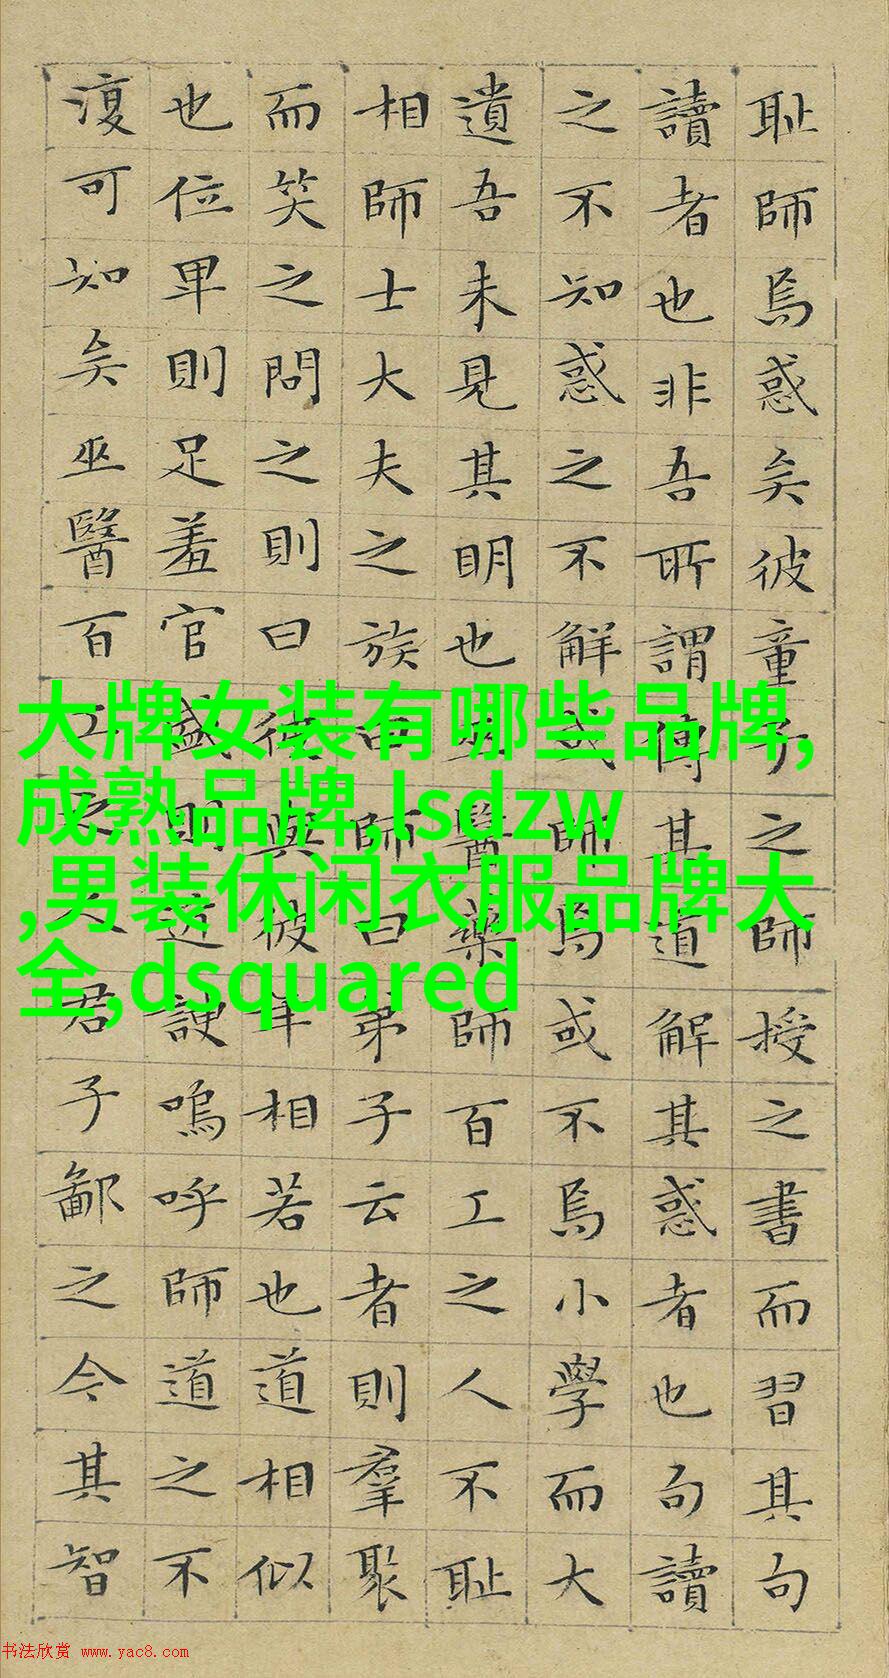 耻師焉惑矣彼童子之師授之書而習其句
讀者也非吾所謂傳其道解其惑者也句讀
之不知惑之不解或師焉或不焉小學而大
遺吾未見其明也巫醫藥師百工之人不耻
相師士大夫之族曰師曰弟子云者則羣聚
而笑之問之則曰彼與彼年相若也道相似
也位卑則足羞官盛則近諛嗚呼師道之不
復可知矣巫醫百工之人君子鄙之今其智
大牌女装有哪些品牌,
成熟品牌,lsdzw
,男装休闲衣服品牌大
全,dsquared
书法欣赏 www.yac8.com